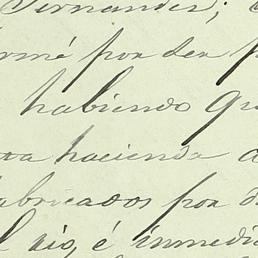 Fernandez;
rmé por ser
habiendo
hacienda
abricados por
rio, é inmedi